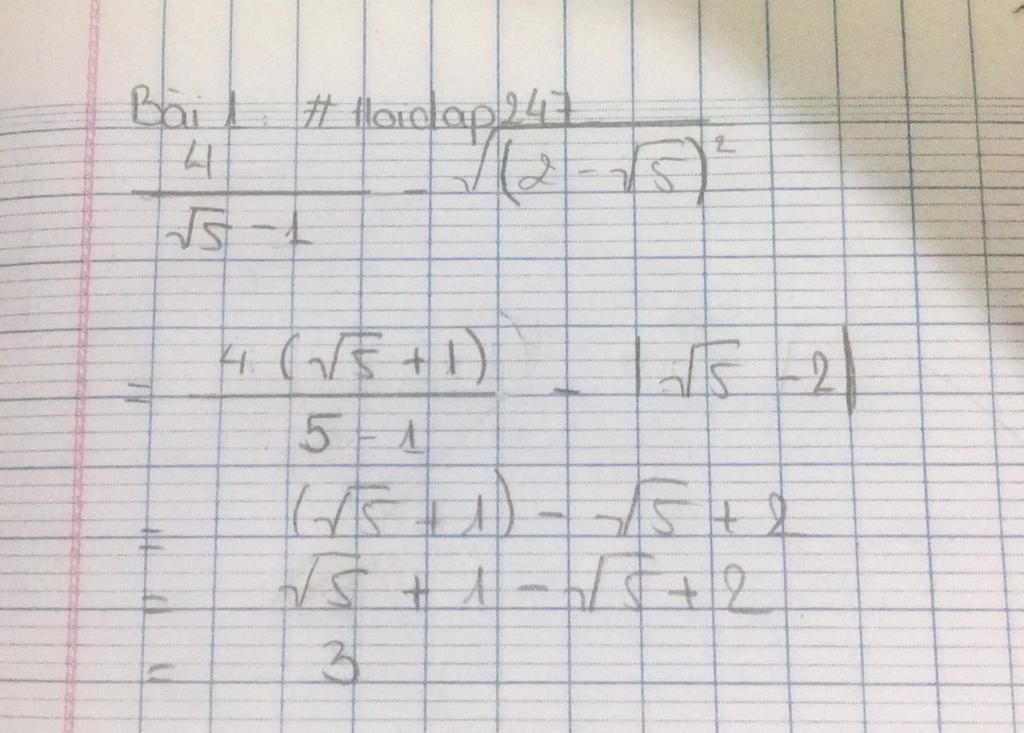 Bài 1. # Hoidap247
4/(√5 - 1) - √(2 - √5)²
= 4. (√5 + 1)/(5 - 1) - |√5 - 2|
= (√5 + 1) - √5 + 2
= √5 + 1 - √5 + 2
= 3